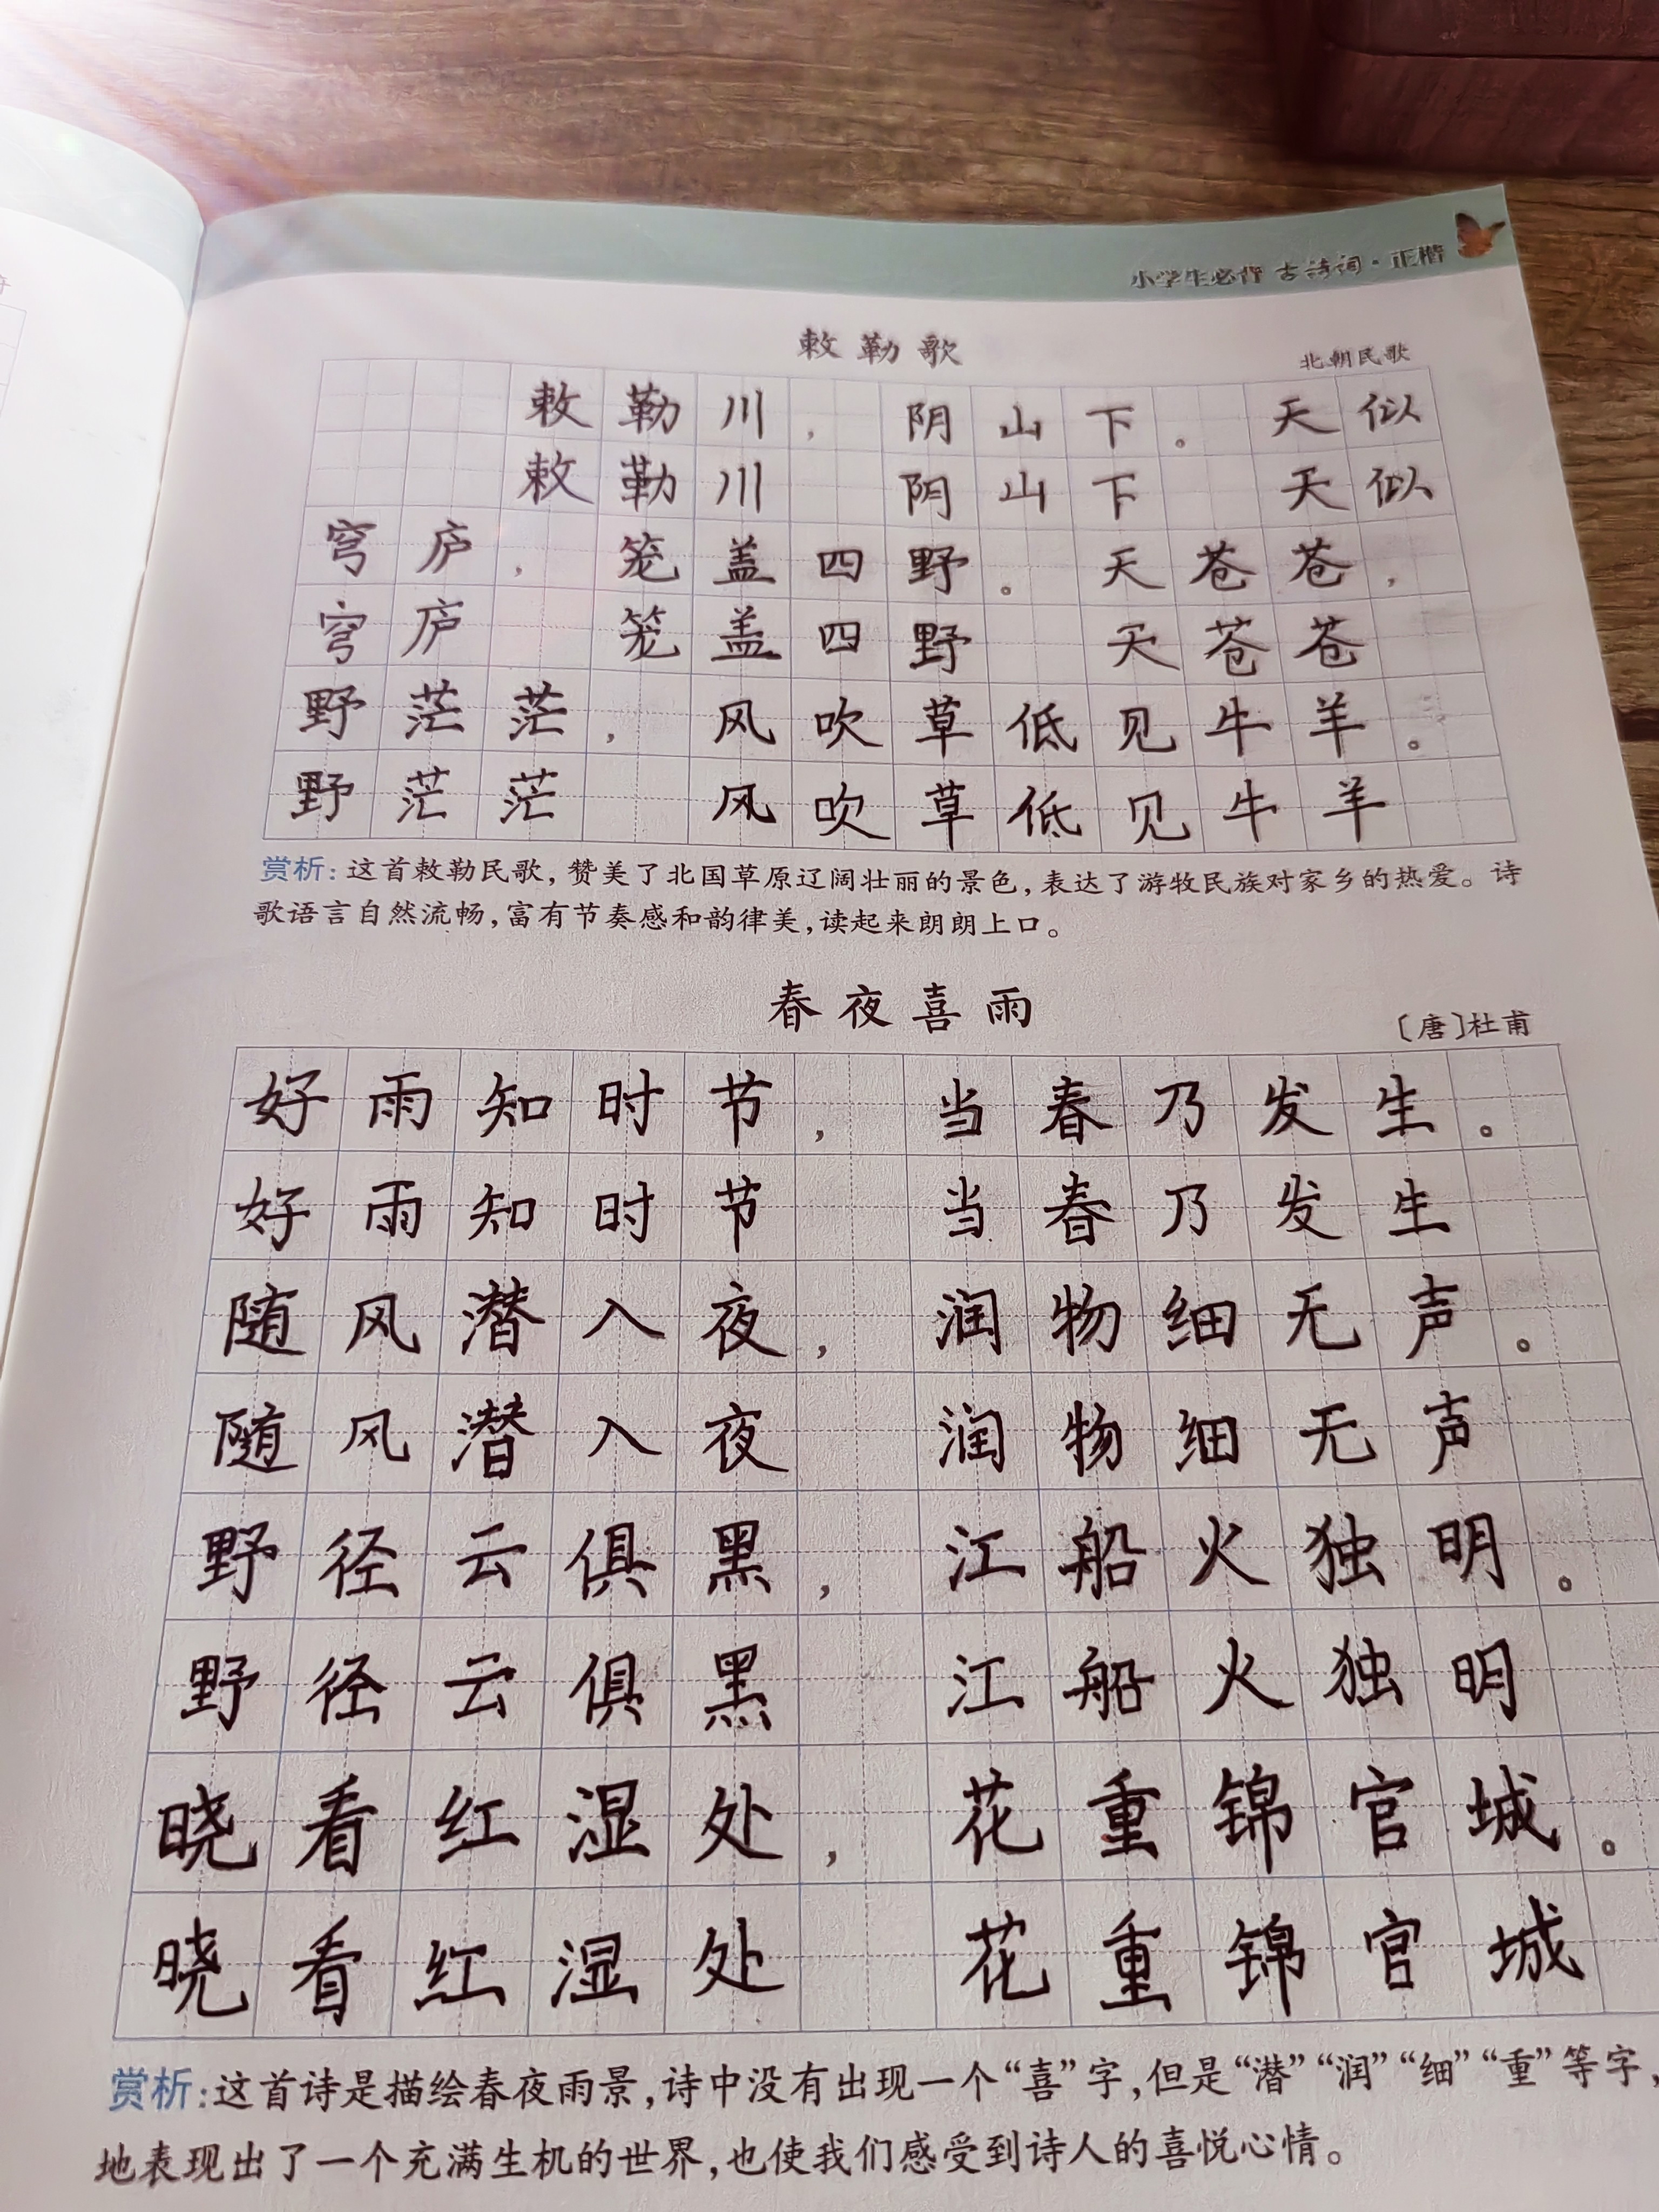 小学生必背 古诗词·正楷
敕勒歌
北朝民歌
敕勒川，阴山下。天似
敕勒川 阴山下 天似
穹庐，笼盖四野。天苍苍，
穹庐 笼盖四野 天苍苍
野茫茫，风吹草低见牛羊。
野茫茫 风吹草低见牛羊
赏析：这首敕勒民歌，赞美了北国草原辽阔壮丽的景色，表达了游牧民族对家乡的热爱。诗
歌语言自然流畅，富有节奏感和韵律美，读起来朗朗上口。
春夜喜雨
〔唐〕杜甫
好雨知时节，当春乃发生。
好雨知时节 当春乃发生
随风潜入夜，润物细无声。
随风潜入夜 润物细无声
野径云俱黑，江船火独明。
野径云俱黑 江船火独明
晓看红湿处，花重锦官城。
晓看红湿处 花重锦官城
赏析：这首诗是描绘春夜雨景，诗中没有出现一个“喜”字，但是“潜”“润”“细”“重”等字，
地表现出了一个充满生机的世界，也使我们感受到诗人的喜悦心情。